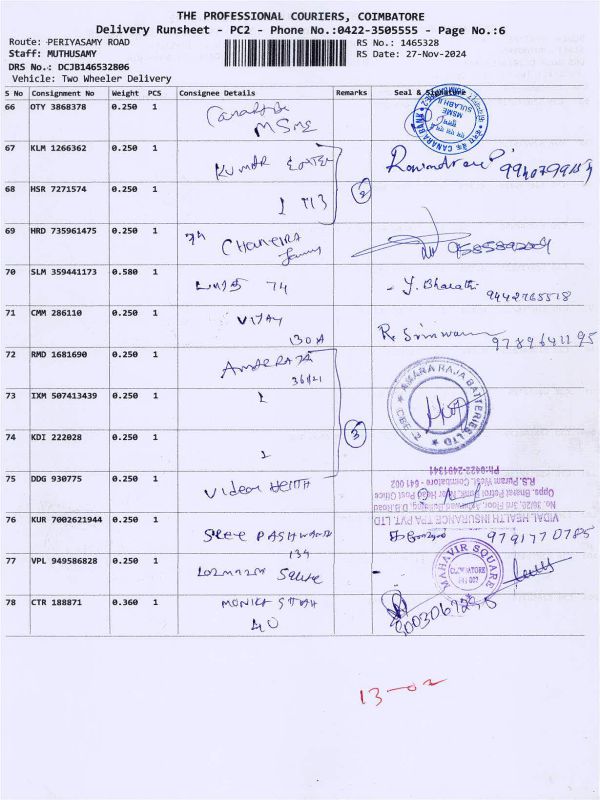 THE PROFESSIONAL COURIERS, COIMBATORE
Delivery Runsheet - PC2 - Phone No.:0422-3505555 - Page No.:6
Route: PERIYASAMY ROAD RS No.: 1465328
Staff: MUTHUSAMY RS Date: 27-Nov-2024
DRS No.: DCJB146532806
Vehicle: Two Wheeler Delivery
S No Consignment No Weight PCS Consignee Details Remarks Seal & Signature
66 OTY 3868378 0.250 1 Canara Bk
MSME
CANARA BANK
MSME SULABH II
67 KLM 1266362 0.250 1 Kumar
68 HSR 7271574 0.250 1
2
69 HRD 735961475 0.250 1
70 SLM 359441173 0.580 1 74 Y. Bharathi
9442765518
71 CMM 286110 0.250 1 Vijay
130A
R. Srinivasan
9789641195
72 RMD 1681690 0.250 1 Amararaja
AMARA RAJA BATTERIES LTD
CBE-2
73 IXM 507413439 0.250 1
74 KDI 222028 0.250 1
3
75 DDG 930775 0.250 1 Vidal Health
VIDAL HEALTH INSURANCE TPA PVT. LTD
No 36/26, 3rd Floor, Building, D.B.Road
Opps. Bharat Petrol Bunk, Near Head Post Office
R.S. Puram West, Coimbatore - 641 002
Ph:0422-2491341
76 KUR 7002621944 0.250 1 Sree
134
9791770785
77 VPL 949586828 0.250 1 Square
MAHAVIR SQUARE
COIMBATORE
641 002
78 CTR 188871 0.360 1 Monika
40
13-02